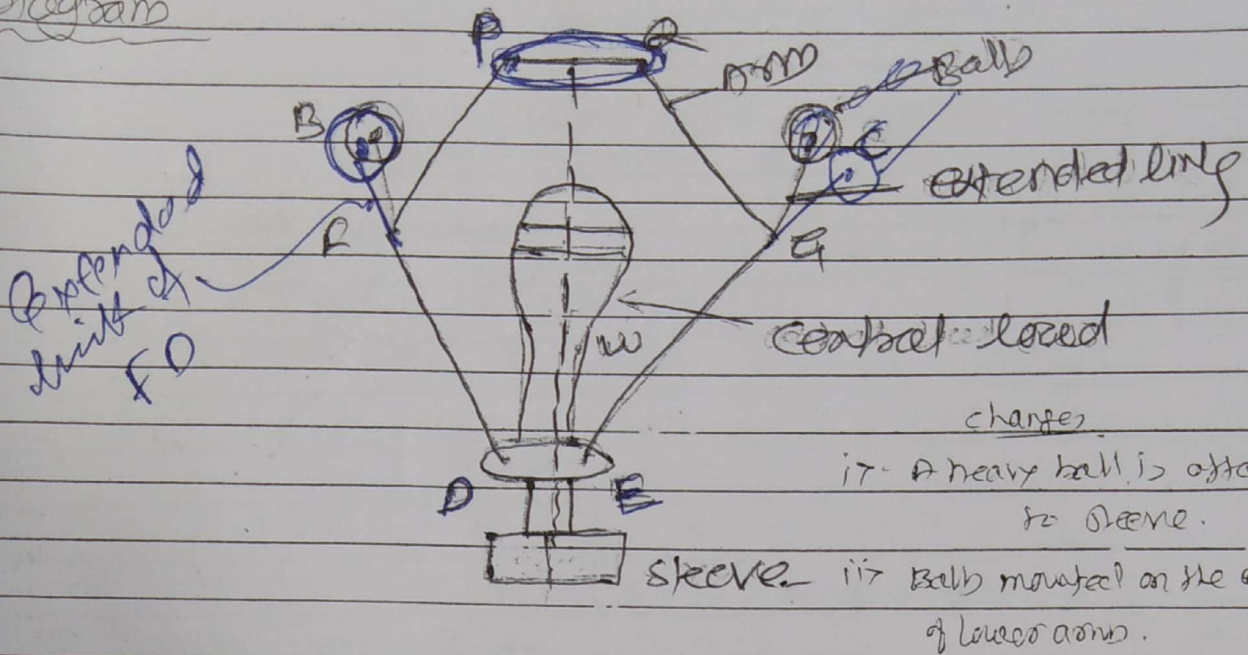 Diagram
P
Q
Arm
Ball
B
C
extended link
F
G
extended
link of
FD
w
central load
changes
i7- A heavy ball is atta
to sleeve.
D
E
sleeve
ii7 Balls mounted on the e
of lower arms.